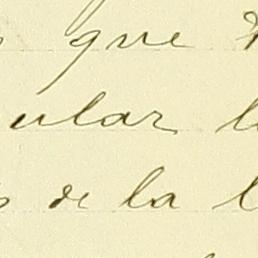 que
ular
de la